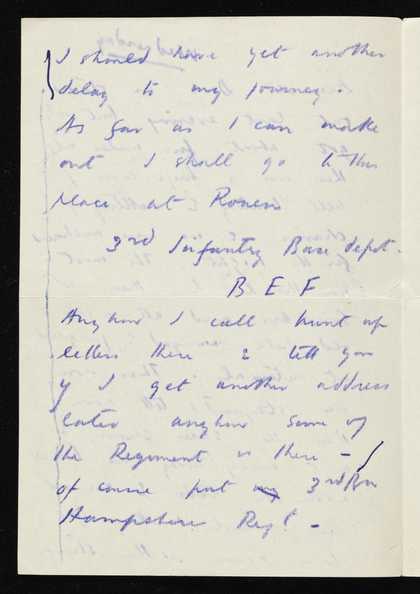 I should have yet another
delay to my journey.
As far as I can make
out I shall go to this
place at Rouen
3rd Infantry Base depot.
B E F
Anyhow I call hunt up
letters there & tell you
if I get another address
later anyhow some of
the Regiment is there –
of course put 3rd Bn
Hampshire Regt –